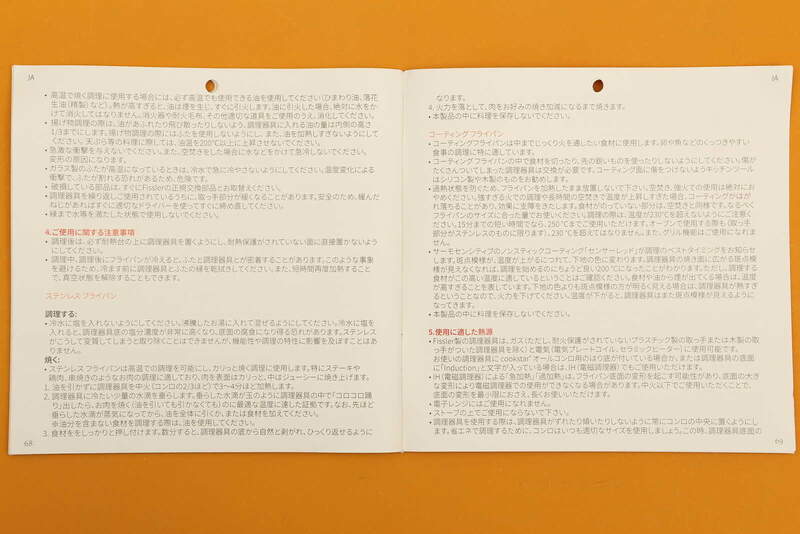 JA
• 高温で焼く調理に使用する場合には、必ず高温でも使用できる油を使用してください(ひまわり油、落花
生油(精製)など)。熱が高すぎると、油は煙を生じ、すぐに引火します。油に引火した場合、絶対に水をか
けて消火してはなりません。消火器や耐火毛布、その他適切な道具をご使用のうえ、消化してください。
• 揚げ物調理の際は、油があふれたり飛び散ったりしないよう、調理器具に入れる油の量は内側の高さ
1/3までにします。揚げ物調理の際にはふたを使用しないようにし、また、油を加熱しすぎないようにして
ください。天ぷら等の料理に際しては、油温を200℃以上に上昇させないでください。
• 急激な衝撃を与えないでください。また、空焚きをした場合に水などをかけて急冷しないでください。
変形の原因になります。
• ガラス製のふたが高温になっているときは、冷水で急に冷やさないようにしてください。温度変化による
衝撃で、ふたが割れる恐れがあるため、危険です。
• 破損している部品は、すぐにFisslerの正規交換部品とお取替えください。
• 調理器具を繰り返しご使用されているうちに、取っ手部分が緩くなることがあります。安全のため、緩んだ
ねじがあればすぐに適切なドライバーを使ってすぐに締め直してください。
• 縁まで水等を満たした状態で使用しないでください。
4.ご使用に関する注意事項
• 調理後は、必ず耐熱台の上に調理器具を置くようにし、耐熱保護がされていない面に直接置かないよう
にしてください。
• 調理中、調理後にフライパンが冷えると、ふたと調理器具とが密着することがあります。このような事象
を避けるため、冷ます前に調理器具とふたの縁を乾拭きしてください。また、短時間再度加熱すること
で、真空状態を解除することもできます。
ステンレス フライパン
調理する:
• 冷水に塩を入れないようにしてください。沸騰したお湯に入れて混ぜるようにしてください。冷水に塩を
入れると、調理器具底の塩分濃度が非常に高くなり、底面の腐食になり得る恐れがあります。ステンレス
がこうして変質してしまうと取り除くことはできませんが、機能性や調理の特性に影響を及ぼすことはあ
りません。
焼く:
• ステンレス フライパンは高温での調理を可能にし、カリッと焼く調理に使用します。特にステーキや
鶏肉、串焼きのようなお肉の調理に適しており、肉を表面はカリッと、中はジューシーに焼き上げます。
1. 油を引かずに調理器具を中火(コンロの2/3ほど)で3〜4分ほど加熱します。
2. 調理器具に冷たい少量の水滴を垂らします。垂らした水滴が玉のように調理器具の中で「コロコロ踊
り」出したら、お肉を焼く(油を引いても引かなくても)のに最適な温度に達した証拠です。なお、先ほど
垂らした水滴が蒸気になってから、油を全体に引くか、または食材を加えてください。
※油分を含まない食材を調理する際は、油を使用してください。
3. 食材ををしっかりと押し付けます。数分すると、調理器具の底から自然と剥がれ、ひっくり返せるように
68
JA
なります。
4. 火力を落として、肉をお好みの焼き加減になるまで焼きます。
• 本製品の中に料理を保存しないでください。
コーティング フライパン
• コーティングフライパンは中までじっくり火を通したい食材に使用します。卵や魚などのくっつきやすい
食事の調理に特に適しています。
• コーティングフライパンの中で食材を切ったり、先の鋭いものを使ったりしないようにしてください。傷が
たくさんついてしまった調理器具は交換が必要です。コーティング面に傷をつけないようキッチンツール
はシリコン製や木製のものをお勧めします。
• 過熱状態を防ぐため、フライパンを加熱したまま放置しないで下さい。空焚き、強火での使用は絶対にお
やめください。強すぎる火での調理や長時間の空焚きで温度が上昇しすぎた場合、コーティングがはが
れ落ちることがあり、効果に支障をきたします。食材がのっていない部分は、空焚きと同様です。なるべく
フライパンのサイズに合った量でお使いください。調理の際は、温度が230℃を超えないようにご注意く
ださい。15分までの短い時間でなら、250℃までご使用いただけます。オーブンで使用する際も(取っ手
部分がステンレスのものに限ります)、230℃を超えてはなりません。また、グリル機能はご使用になれま
せん。
• サーモセンシティブのノンスティックコーティング「センサーレッド」が調理のベストタイミングをお知らせ
します。斑点模様が、温度が上がるにつれて、下地の色に変わります。調理器具の焼き面に広がる斑点模
様が見えなくなれば、調理を始めるのにちょうど良い200℃になったことがわかります。ただし、調理する
食材がこの高い温度に適しているということはご確認ください。食材や油から煙が出てくる場合は、温度
が高すぎることを表しています。下地の色よりも斑点模様の方が明るく見える場合は、調理器具が熱すぎ
るということなので、火力を下げてください。温度が下がると、調理器具はまた斑点模様が見えるように
なってきます。
• 本製品の中に料理を保存しないでください。
5.使用に適した熱源
• Fissler製の調理器具は、ガス(ただし、耐火保護がされていないプラスチック製の取っ手または木製の取
っ手がついた調理器具を除く)と電気(電気プレートコイル、セラミックヒーター)に使用可能です。
お使いの調理器具に cookstar® オールコンロ用のはり底が付いている場合か、または調理器具の底面
に「Induction」と文字が入っている場合は、IH(電磁調理器)でもご使用いただけます。
• IH(電磁調理器)による「急加熱」「過加熱」は、フライパン底面の変形を起こす可能性があり、底面の大き
な変形により電磁調理器での使用ができなくなる場合があります。中火以下でご使用いただくことで、
底面の変形を最小限におさえ、長くお使いいただけます。
• 電子レンジにはご使用になれません。
• ストーブの上でご使用にならないで下さい。
• 調理器具を使用する際は、調理器具がずれたり傾いたりしないように常にコンロの中央に置くようにし
ます。省エネで調理するために、コンロはいつも適切なサイズを使用しましょう。この時、調理器具底面の
69